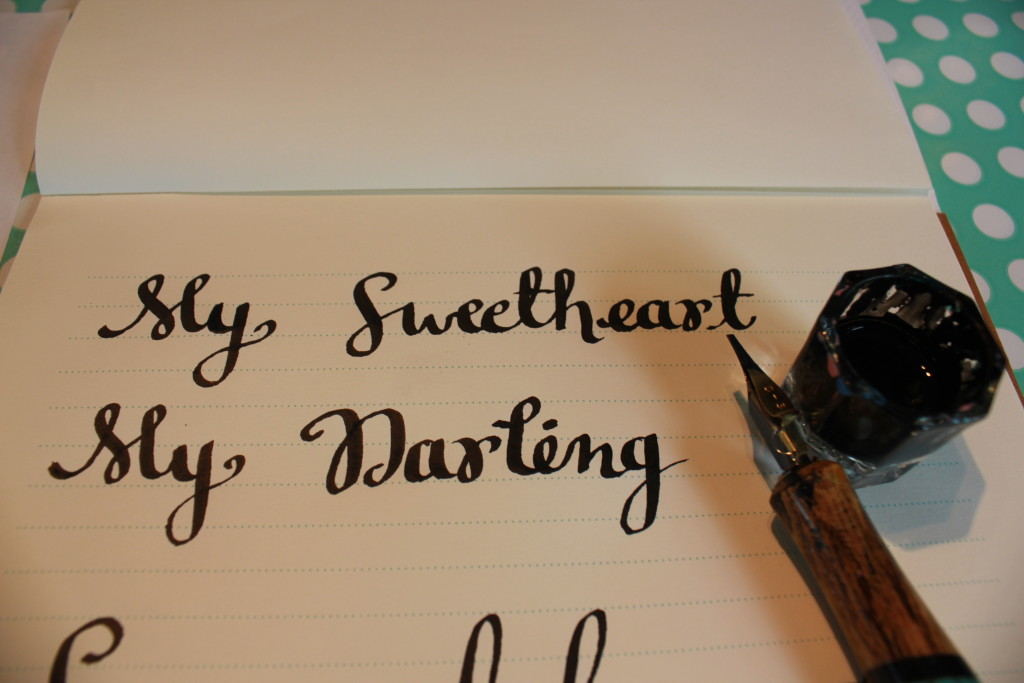 My Sweetheart
My Darling